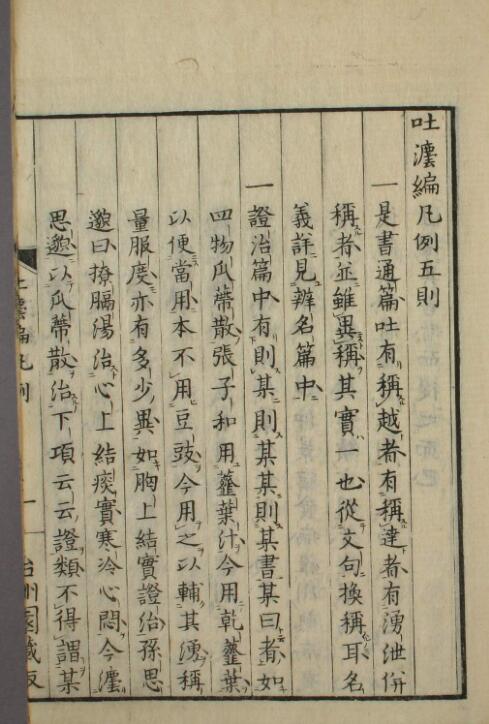 吐瀍編凡例五則
一是書通篇吐有稱越者有稱達者有湧泄併
稱者並雖異稱其實一也從文句換稱耳名
義詳見辨名篇中
一證治篇中有則某則某某則某書某曰者如
四物瓜蔕散張子和用虀葉汁今用乾虀葉
以便當用本不用豆豉今用之以輔其湧稱
量服度亦有多少異如胸上結實證治孫思
邈曰撩膈湯治心上結痰實寒冷心悶今瀍
思邈以瓜蔕散治下項云云證類不得謂某
凡例
一